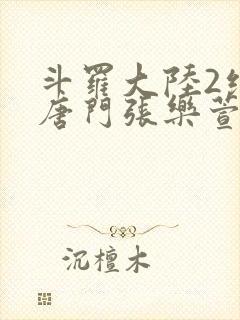 斗羅大陸2絕
唐門張樂萱
沉檀木